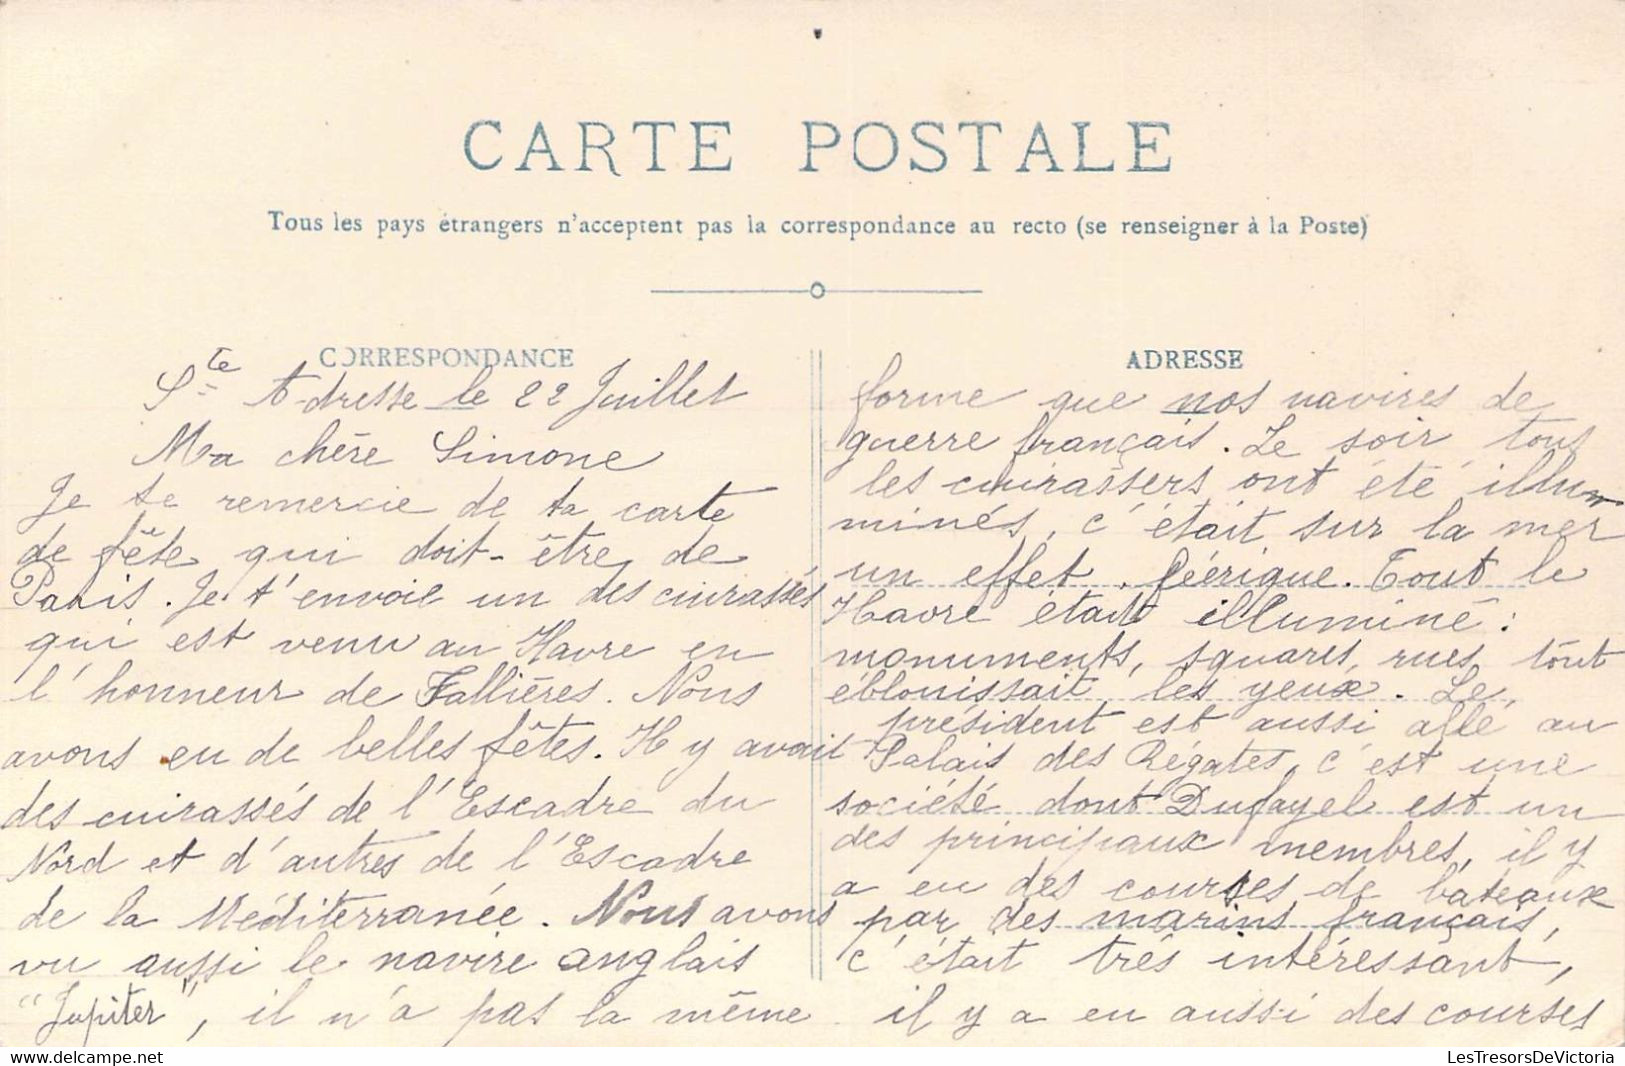 CARTE POSTALE
Tous les pays étrangers n'acceptent pas la correspondance au recto (se renseigner à la Poste)
CORRESPONDANCE
Ste Adresse le 22 Juillet
Ma chère Simone
Je te remercie de ta carte
de fête qui doit-être de
Paris. Je t'envoie un des cuirassés
qui est venu au Havre en
l'honneur de Fallières. Nous
avons eu de belles fêtes. Il y avait
des cuirassés de l'Escadre du
Nord et d'autres de l'Escadre
de la Méditerranée. Nous avons
vu aussi le navire anglais
"Jupiter", il n'a pas la même
ADRESSE
forme que nos navires de
guerre français. Le soir tous
les cuirassers ont été illum
minés, c'était sur la mer
un effet féérique. Tout le
Havre était illuminé :
monuments, squares, rues, tout
éblouissait les yeux. Le
président est aussi allé au
Palais des Régates, c'est une
société dont Dufayel est un
des principaux membres, il y
a eu des courses de bateaux
par des marins français,
c'était très intéressant,
il y a eu aussi des courses
LesTresorsDeVictoria